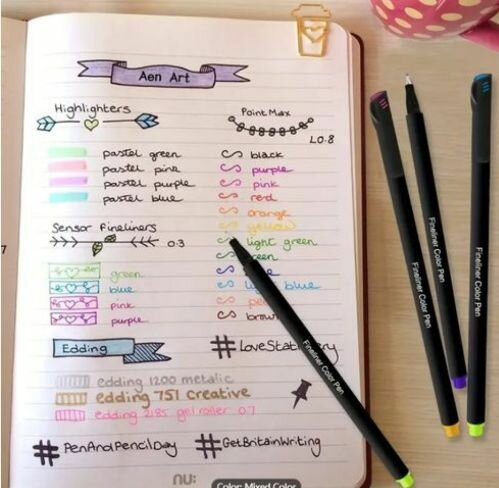 Aen Art
Highlighters
pastel green
pastel pink
pastel purple
pastel blue
Sensor Fineliners
0.3
green
blue
pink
purple
Edding
edding 1200 metalic
edding 751 creative
edding 2185 gel roller 0.7
#PenAndPencilDay
Point Max
0.8
black
purple
pink
red
orange
yellow
light green
blue
brown
#GetBritainWriting
nu:
Color: Mixed Color
Fineliner Color Pen
Fineliner Color Pen
Fineliner Color Pen
Fineliner Color Pen
7